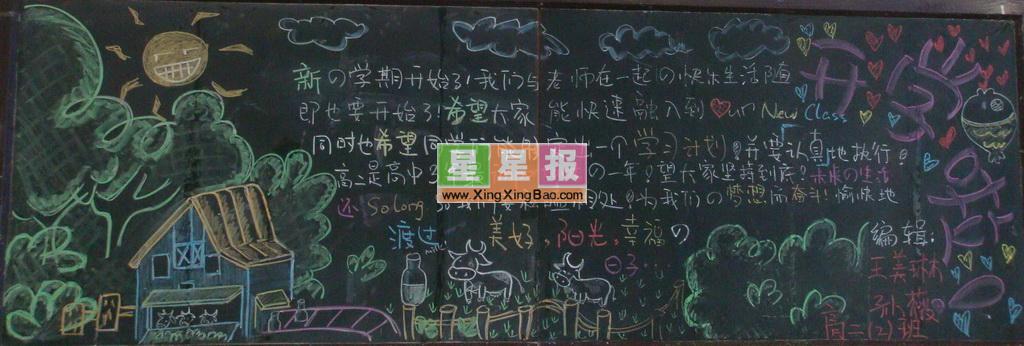 新の学期开始了!我们与老师在一起の快乐生活随
即也要开始了!希望大家能快速融入到 ur New Class
同时也希望同 一个学习计划!并要认真地执行。
高二是高中 の一年!望大家坚持到底!未来の生活
还 So long 为我们の梦想而奋斗!愉快地
渡过 美好,阳光,幸福の
日子...
开学
编辑:
王美琳
孙薇
高二(2)班
星星报
www.XingXingBao.com